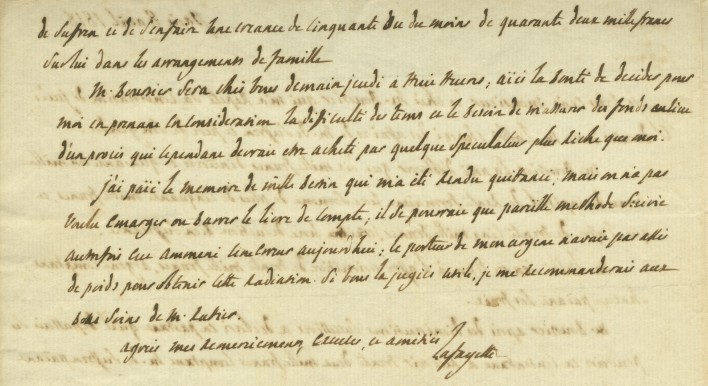 de Sufren et de s'enfaire une creance de cinquante ou du moins de quarante deux mille francs
sur lui dans les arrangements de famille
M. Boursier sera chés vous demain jeudi a huit heures; aiés la bonté de decider pour
moi en prenant en consideration la dificulté des tems et le besoin de m'assurer des fonds au lieu
d'un procès qui cependant devrait etre acheté par quelque speculateur plus riche que moi.
j'ai païé le memoire de qui m'a été rendu quitancé, mais on n'a pas
voulu emarger ou barrer le livre de compte; il se pourrait que pareille methode suivie
autrefois eut ammené une erreur aujourd'hui; le porteur de mon argent n'avait pas assés
de poids pour obtenir cette radiation. Si vous le jugiés utile, je me recommanderais aux
bons soins de M.
agréés mes remerciemens, excuses, et amitiés
Lafayette